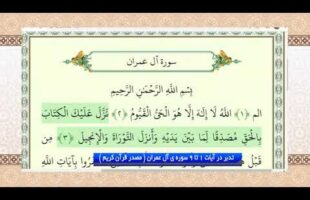 سورة آل عمران
بِسْمِ اللَّهِ الرَّحْمَٰنِ الرَّحِيمِ
الم ﴿١﴾ اللَّهُ لَا إِلَٰهَ إِلَّا هُوَ الْحَيُّ الْقَيُّومُ ﴿٢﴾ نَزَّلَ عَلَيْكَ الْكِتَابَ
بِالْحَقِّ مُصَدِّقًا لِّمَا بَيْنَ يَدَيْهِ وَأَنزَلَ التَّوْرَاةَ وَالْإِنجِيلَ ﴿٣﴾ مِن
قَبْلُ رُوا بِآيَاتِ اللَّهِ
تدبر در آیات ۱ تا ۹ سوره ی آل عمران ( مصدر قرآن کریم )